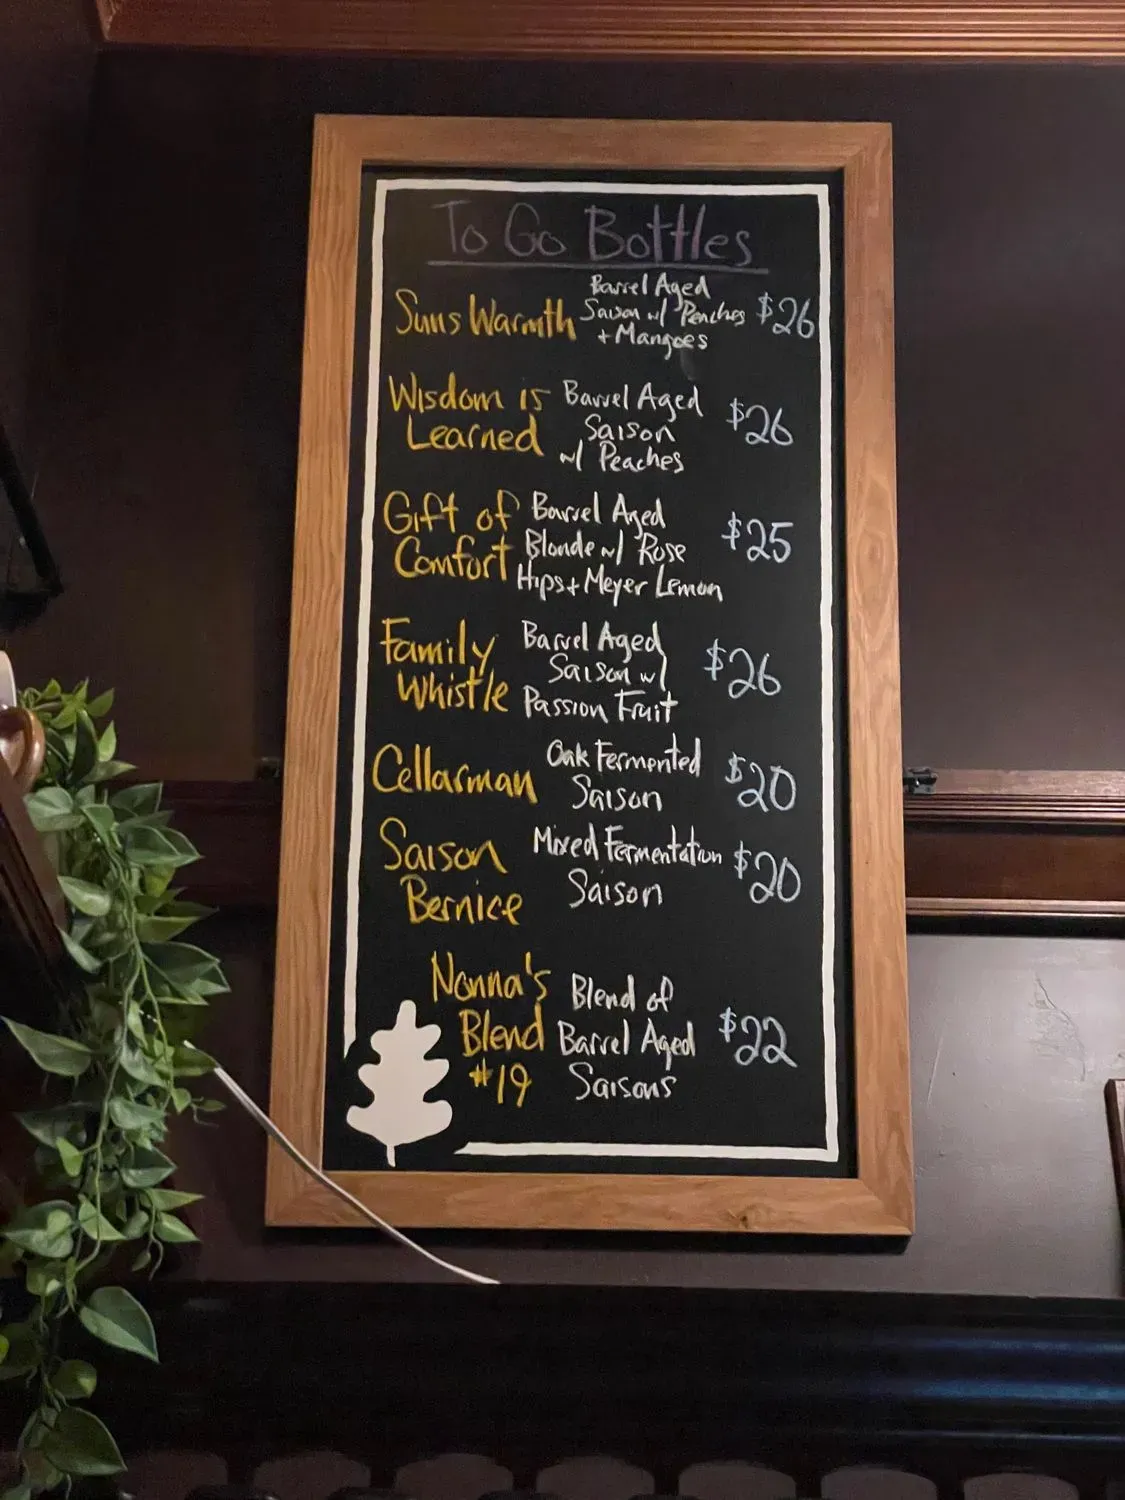 To Go Bottles
Suns Warmth
Barrel Aged
Saison w/ Peaches
+ Mangoes
$26
Wisdom is
Learned
Barrel Aged
Saison
w/ Peaches
$26
Gift of
Comfort
Barrel Aged
Blonde w/ Rose
Hips + Meyer Lemon
$25
Family
Whistle
Barrel Aged
Saison w/
Passion Fruit
$26
Cellarman
Oak Fermented
Saison
$20
Saison
Bernice
Mixed Fermentation
Saison
$20
Nonna's
Blend
#19
Blend of
Barrel Aged
Saisons
$22